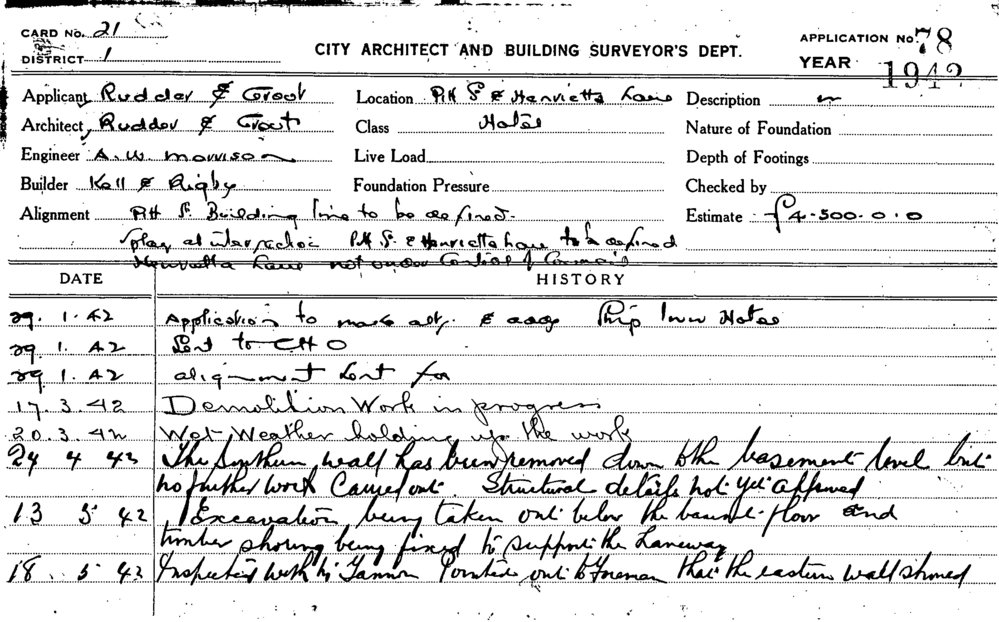 CARD No. 21
DISTRICT 1
CITY ARCHITECT AND BUILDING SURVEYOR'S DEPT.
APPLICATION No. 78
YEAR 1942
Applicant Rudder & Grout Location Pitt St & Henrietta Lane Description
Architect Rudder & Grout Class Hotel Nature of Foundation
Engineer A. W. Morrison Live Load Depth of Footings
Builder Kell & Rigby Foundation Pressure Checked by
Alignment Pitt St. Building line to be defined. Estimate £4.500.0.0
Splay at intersection Pitt St. & Henrietta Lane to be defined
Henrietta Lane not under Control of Council
DATE HISTORY
29. 1. 42 Application to make alt. & adds Ship Inn Hotel
29. 1. 42 Sent to CHO
29. 1. 42 alignment sent for
17. 3. 42 Demolition Work in progress
20. 3. 42 Wet Weather holding up the work
24 4 42 The Southern wall has been removed down to the basement level but
no further work Carried out. Structural details not yet approved
13 5 42 Excavation being taken out below the basement floor and
timber shoring being fixed to support the Laneway
18. 5 42 Inspected with Mr Pointed out to Foreman that the eastern wall showed